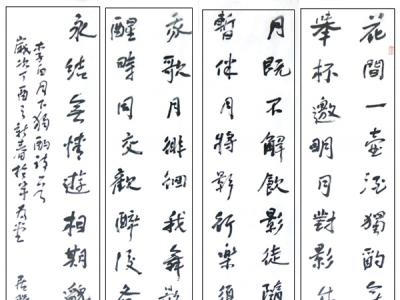 花間一壺酒獨酌
舉杯邀明月對影
月既不解飲影徒隨
暫伴月將影行樂須
我歌月徘徊我舞影
醒時同交歡醉後各
永結無情遊相期邈
李白月下獨酌詩一首
歲次丁酉之新春於